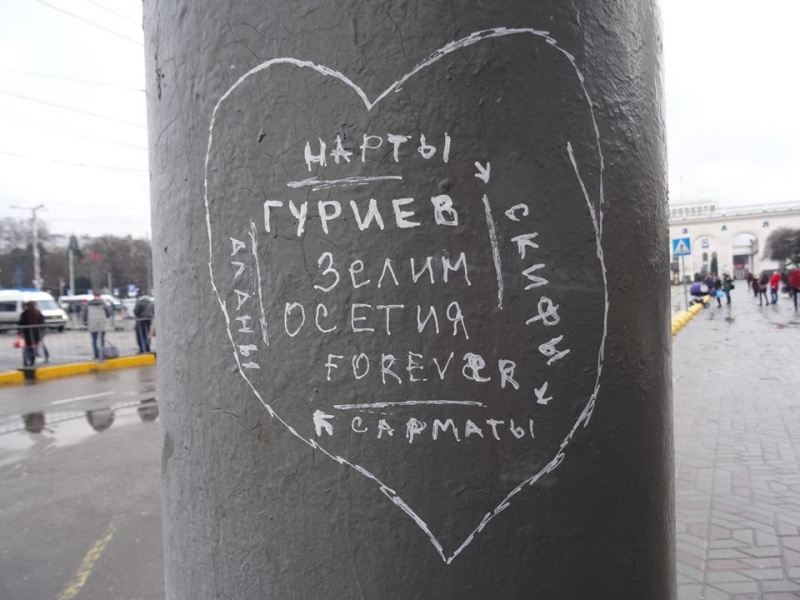 НАРТЫ
ГУРИЕВ
Зелим
ОСЕТИЯ
FOREVER
САРМАТЫ
СКИФЫ
АЛАНЫ